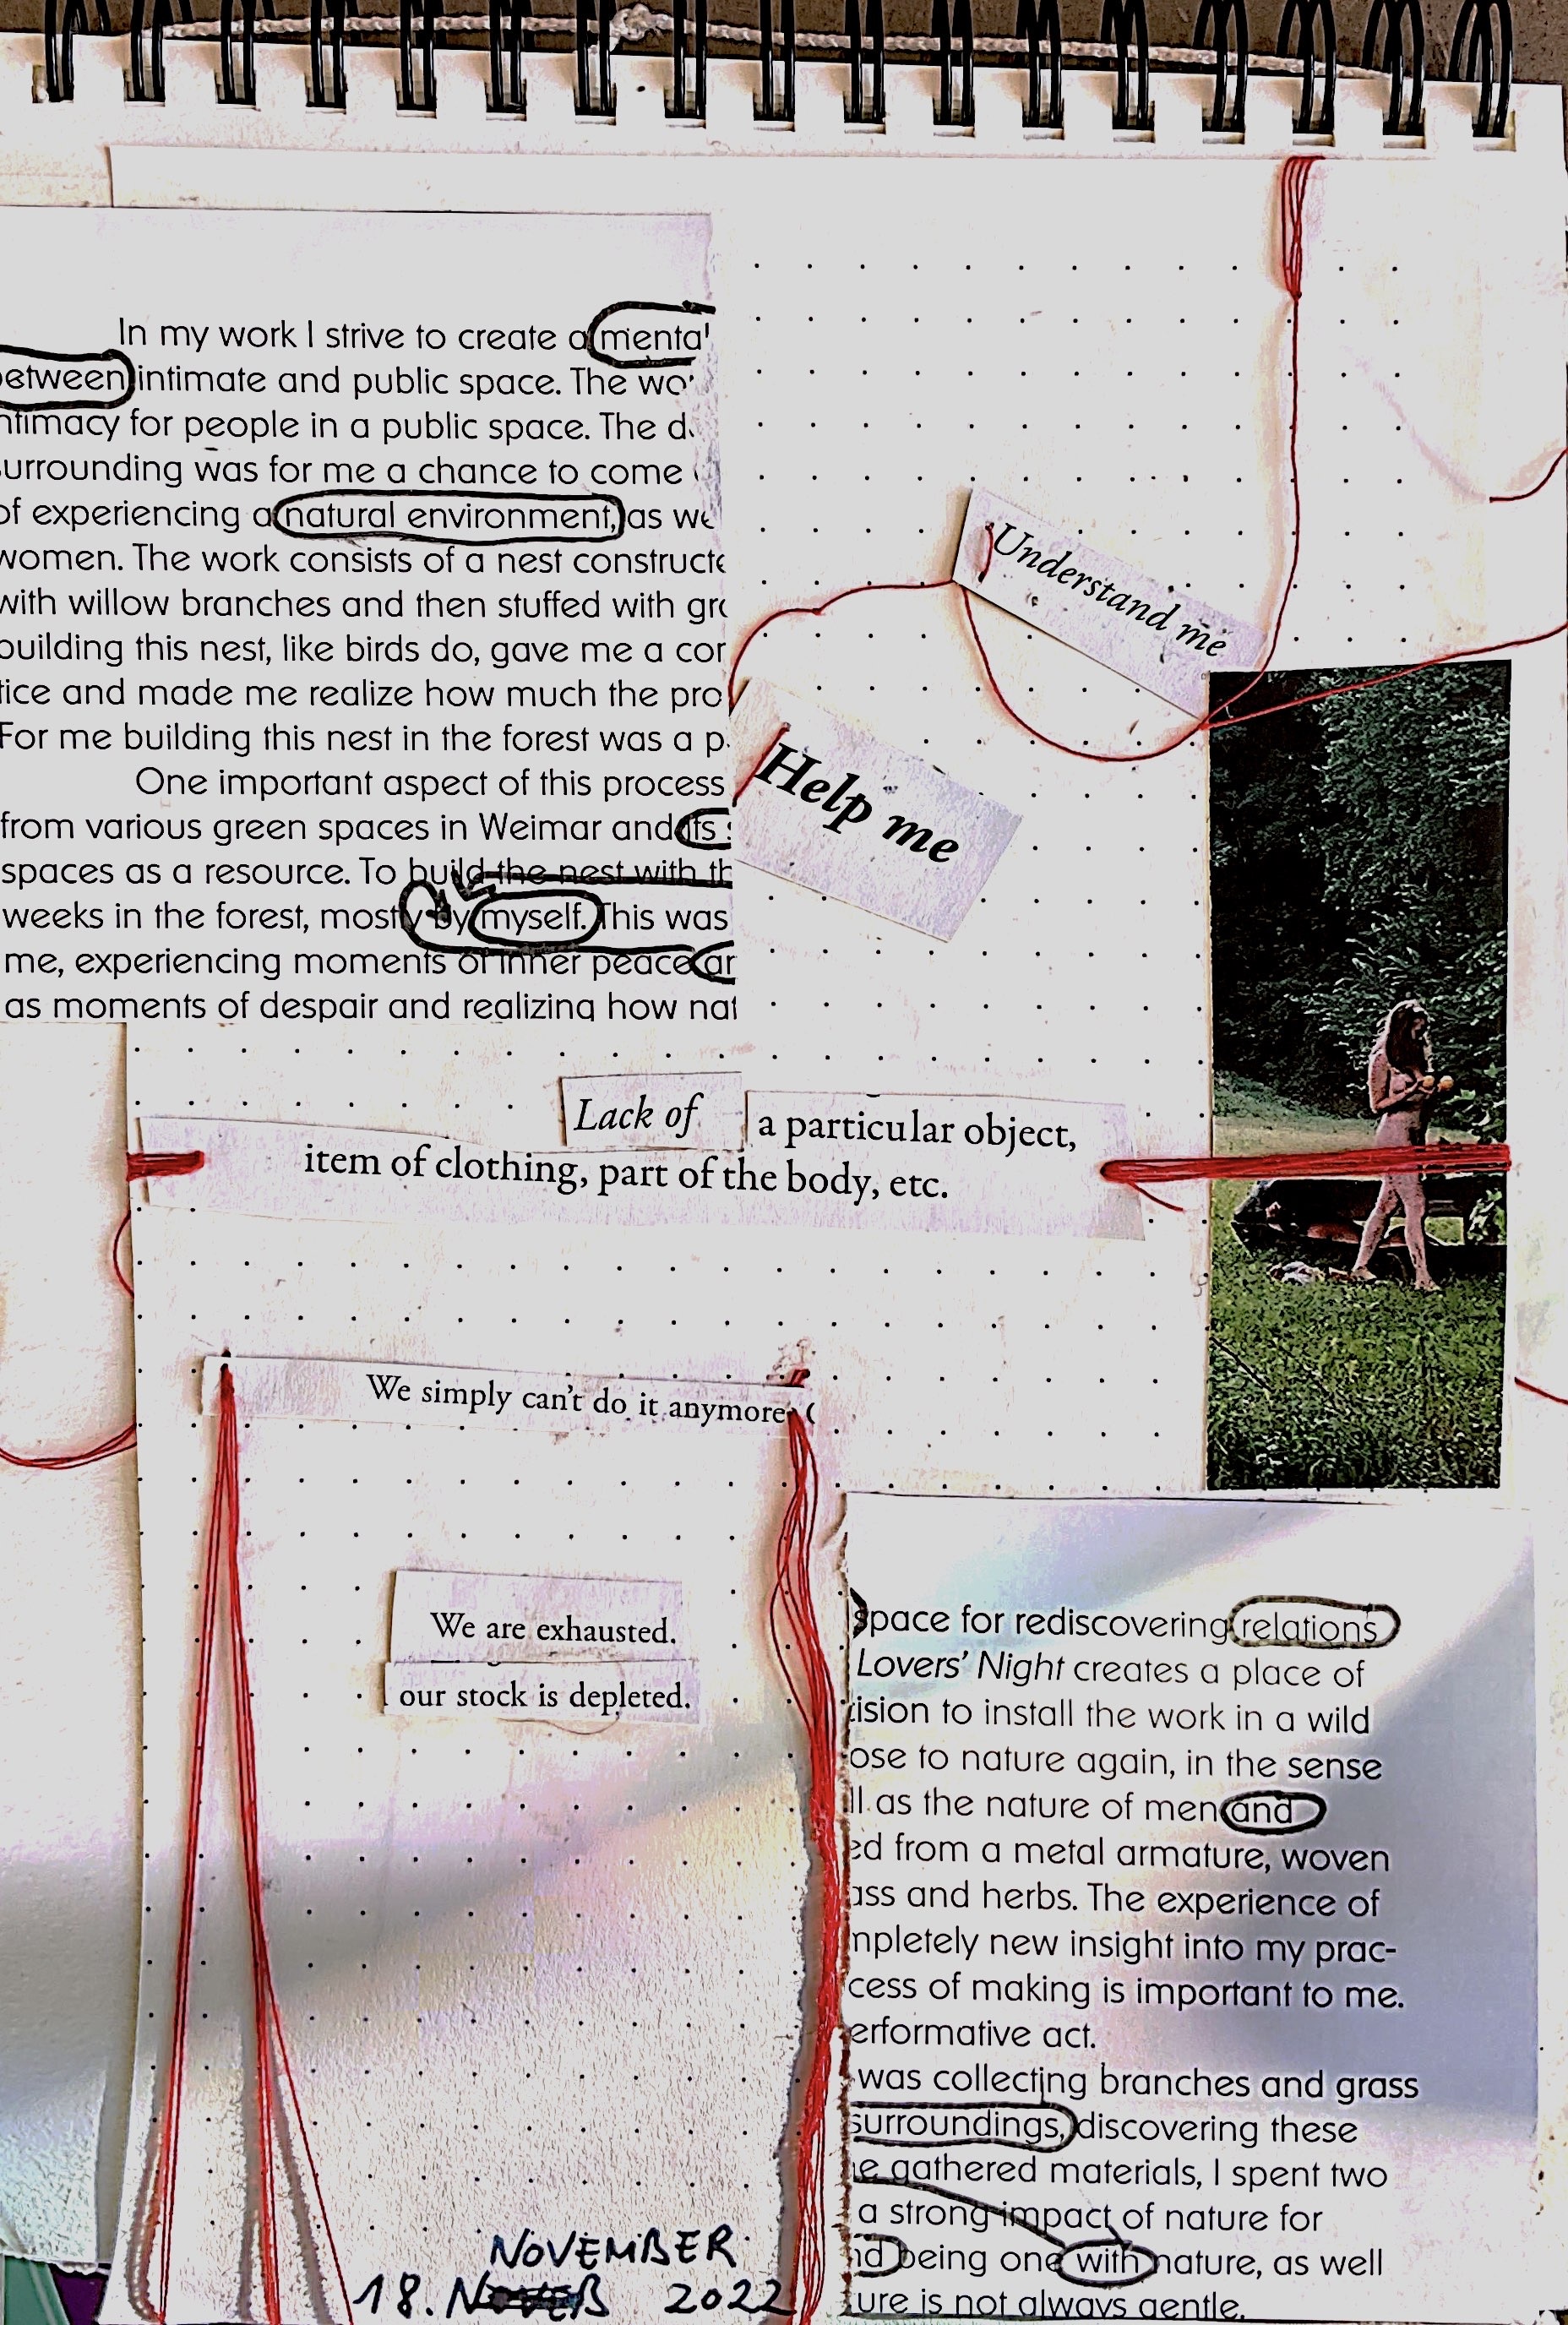 In my work I strive to create a
between intimate and public space. The
for people in a public space. The
surrounding was for me a chance to come
of experiencing a natural environment, as
women. The work consists of a nest
with willow branches and then stuffed with
building this nest, like birds do, gave me a
and made me realize how much the
For me building this nest in the forest was a
One important aspect of this process
from various green spaces in Weimar and its
spaces as a resource. To build the nest with
weeks in the forest, mostly by myself. This was
me, experiencing moments of inner peace
as moments of despair and realizing how
Understand me
Help me
Lack of a particular object,
item of clothing, part of the body, etc.
We simply can't do it anymore
We are exhausted.
our stock is depleted.
space for rediscovering relations
Lovers' Night creates a place of
to install the work in a wild
to nature again, in the sense
as the nature of men and
from a metal armature, woven
and herbs. The experience of
new insight into my prac-
of making is important to me.
act.
was collecting branches and grass
surroundings, discovering these
gathered materials, I spent two
a strong impact of nature for
being one with nature, as well
is not always gentle.
NOVEMBER
18. 2022